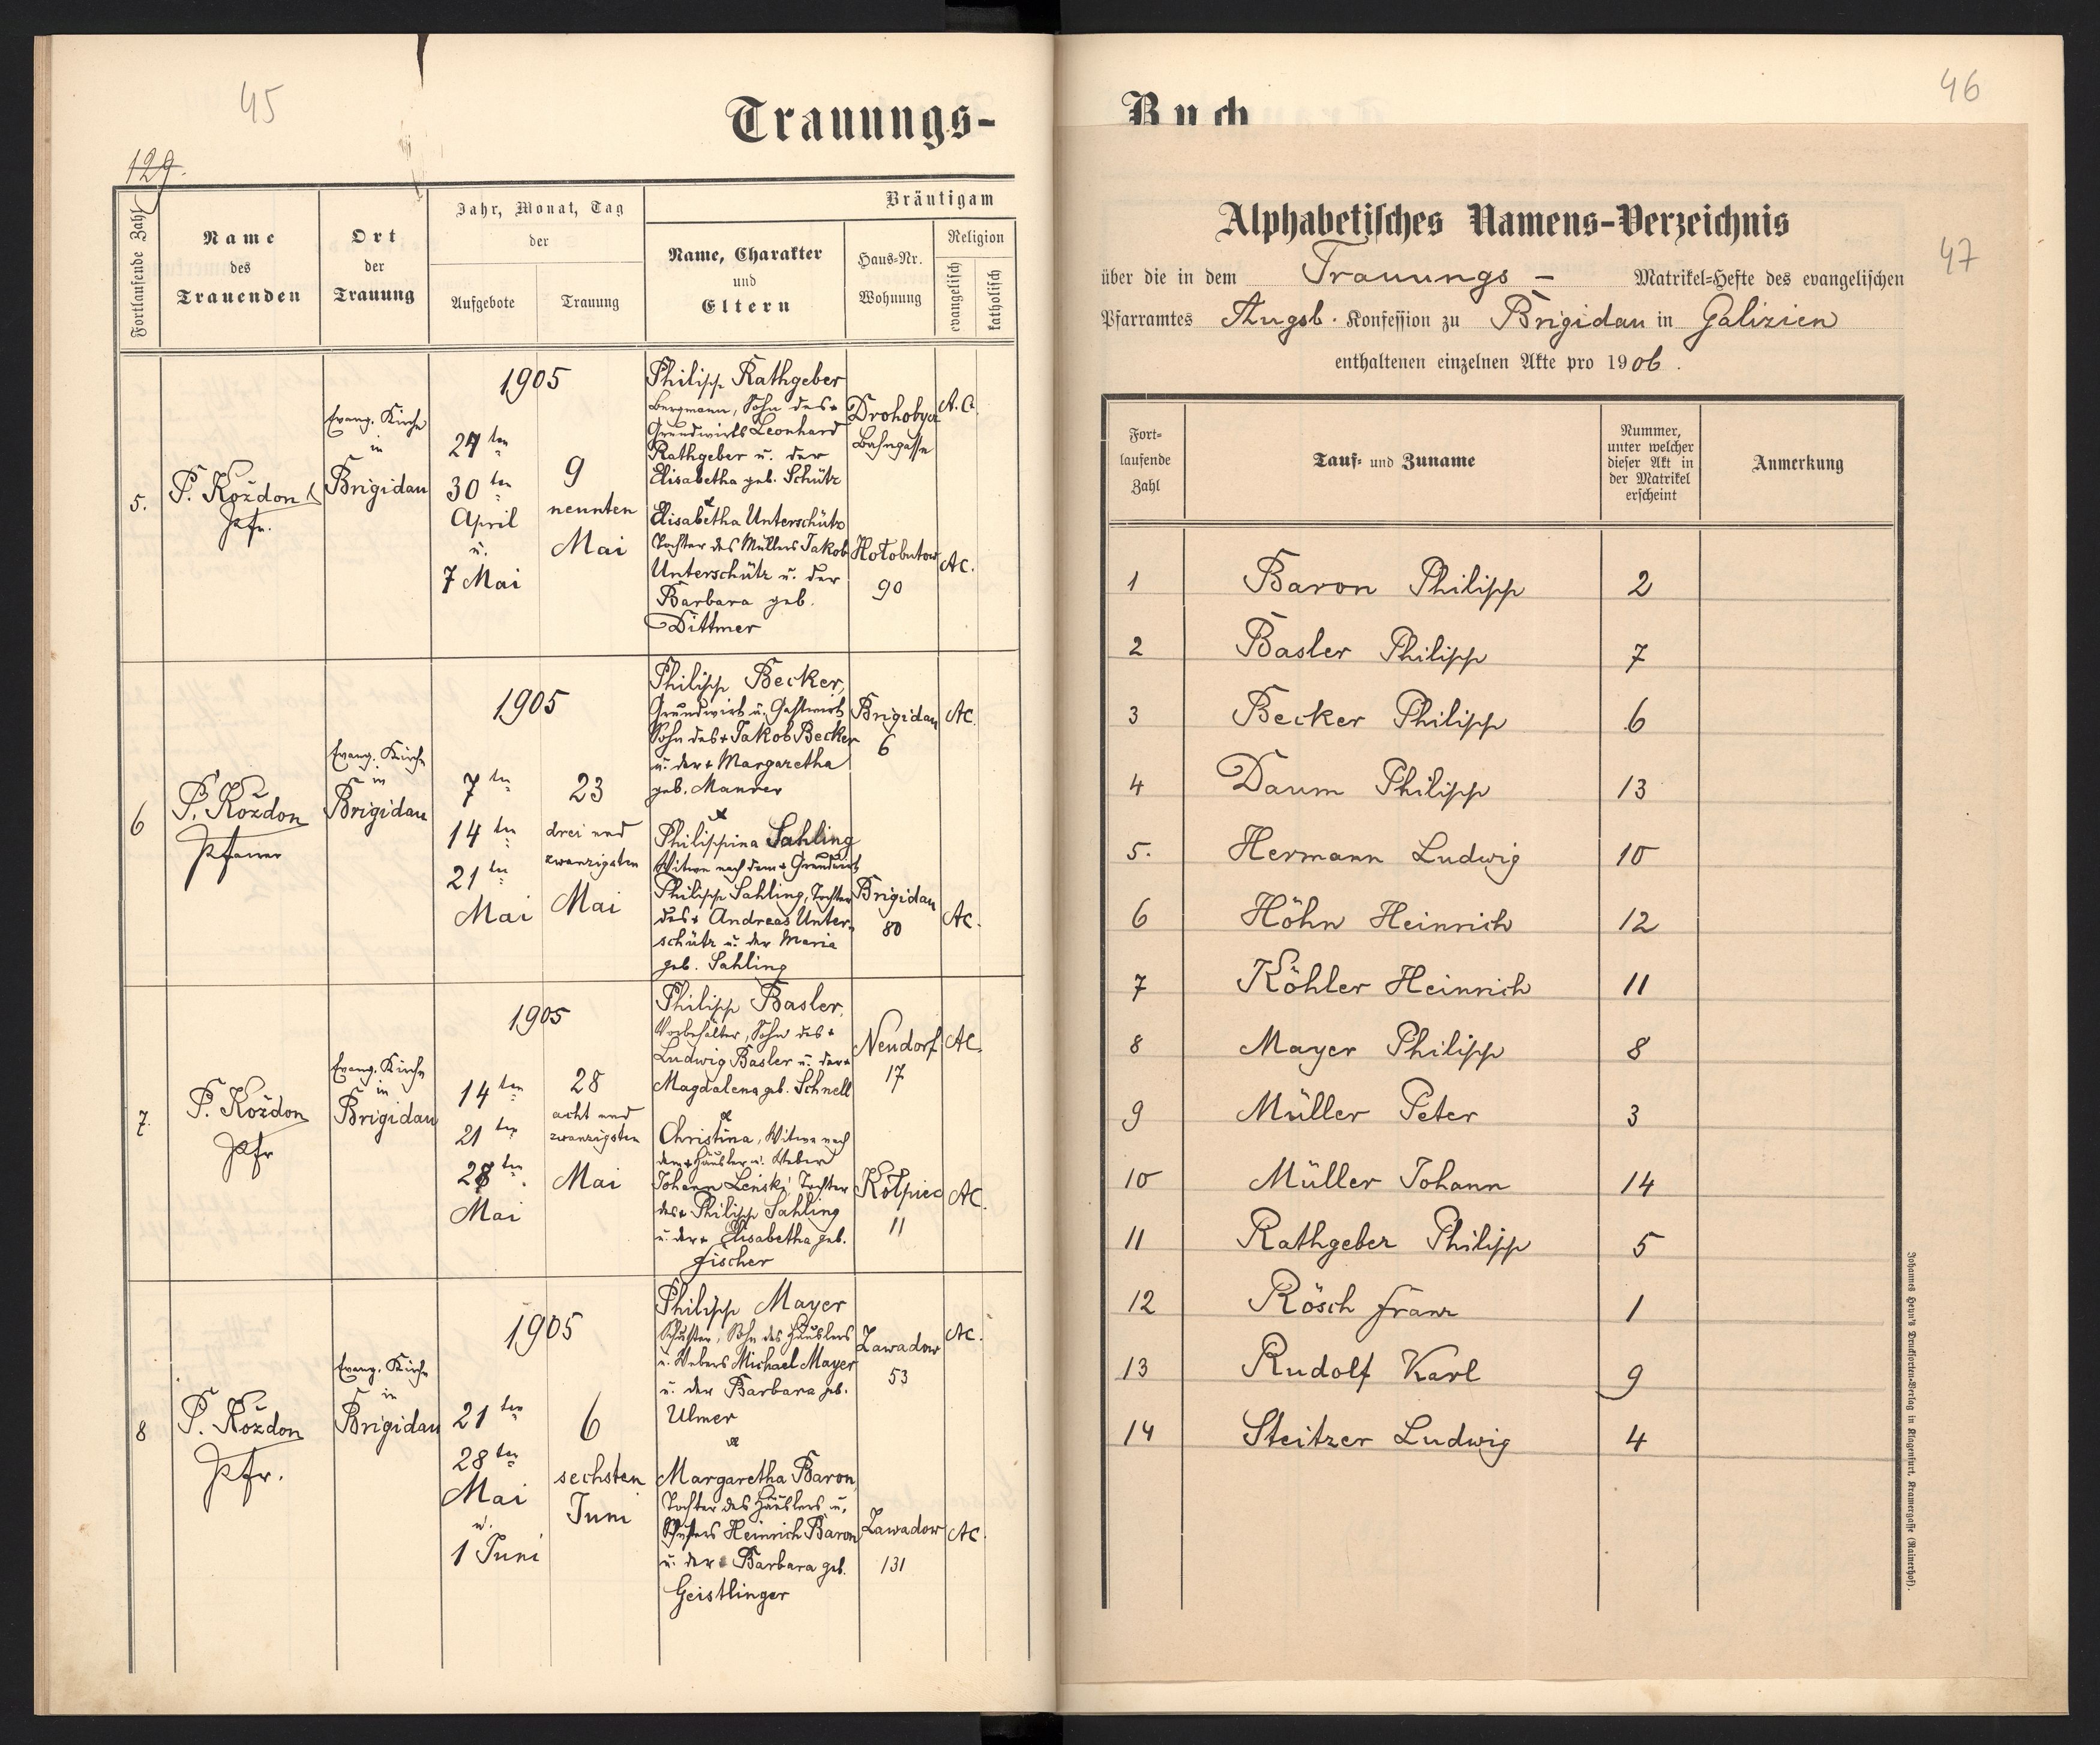 45
129.
Trauungs-
Fortlaufende Zahl
Name
des
Trauenden
Ort
der
Trauung
Jahr, Monat, Tag
der
Aufgebote
Trauung
Bräutigam
Name, Charakter
und
Eltern
Haus-Nr.
Wohnung
Religion
evangelisch
katholisch
5.
P. Kożdoń
Pfr.
Evang. Kirche
in
Brigidau
1905
30ten
April
u.
7 Mai
9
neunten
Mai
Philipp Rathgeber
Bergmann, Sohn des +
Grundwirts Leonhard
Rathgeber u. der
Elisabetha geb. Schütz
&
Elisabetha Unterschütz
Tochter des Müllers Jakob
Unterschütz u. der
Barbara geb.
Dittmer
Drohobycz
Bahngasse
A.C.
Hołobutow
90
AC.
6
P. Kożdon
Pfarrer
Evang. Kirche
in
Brigidau
1905
7ten
14ten
21ten
Mai
23
drei und
zwanzigsten
Mai
Philipp Becker,
Grundwirt u. Gastwirt
Sohn des + Jakob Becker
u. der + Margaretha
geb. Maurer
&
Philippina Sahling
Witwe nach dem + Grundwirt
Philipp Sahling, Tochter
des + Andreas Unter-
schütz u. der Maria
geb. Sahling
Brigidau
6
AC.
Brigidau
80
AC.
7.
P. Kożdon
Pfr
Evang. Kirche
in
Brigidau
1905
14ten
21ten
28ten
Mai
28
acht und
zwanzigsten
Mai
Philipp Basler,
Vorbehälter, Sohn des +
Ludwig Basler u. der +
Magdalena geb. Schnell
&
Christina, Witwe nach
dem + Häusler u. Weber
Johann Lenski, Tochter
des + Philipp Sahling
u. der + Elisabetha geb.
Fischer
Neudorf
17
AC.
Kołpiec
11
AC.
8
P. Kożdon
Pfr.
Evang. Kirche
in
Brigidau
1905
21ten
28ten
Mai
u.
1 Juni
6
sechsten
Juni
Philipp Mayer
Schuster, Sohn des Häuslers
u. Webers Michael Mayer
u. der Barbara geb.
Ulmer
&
Margaretha Baron,
Tochter des Häuslers u.
Schusters Heinrich Baron
u. der Barbara geb.
Geistlinger
Zawadow
53
AC.
Zawadow
131
AC.
46
Buch
47
Alphabetisches Namens-Verzeichnis
über die in dem Trauungs- Matrikel-Hefte des evangelischen
Pfarramtes Augsb. Konfession zu Brigidau in Galizien
enthaltenen einzelnen Akte pro 1906.
Fort-
laufende
Zahl
Tauf- und Zuname
Nummer,
unter welcher
dieser Akt in
der Matrikel
erscheint
Anmerkung
1 Baron Philipp 2
2 Basler Philipp 7
3 Becker Philipp 6
4 Daum Philipp 13
5. Hermann Ludwig 10
6 Höhn Heinrich 12
7 Köhler Heinrich 11
8 Mayer Philipp 8
9 Müller Peter 3
10 Müller Johann 14
11 Rathgeber Philipp 5
12 Rösch Franz 1
13 Rudolf Karl 9
14 Steitzer Ludwig 4
Johannes Heyn's Drucksorten-Verlag in Klagenfurt, Kramergasse (Rainerhof).